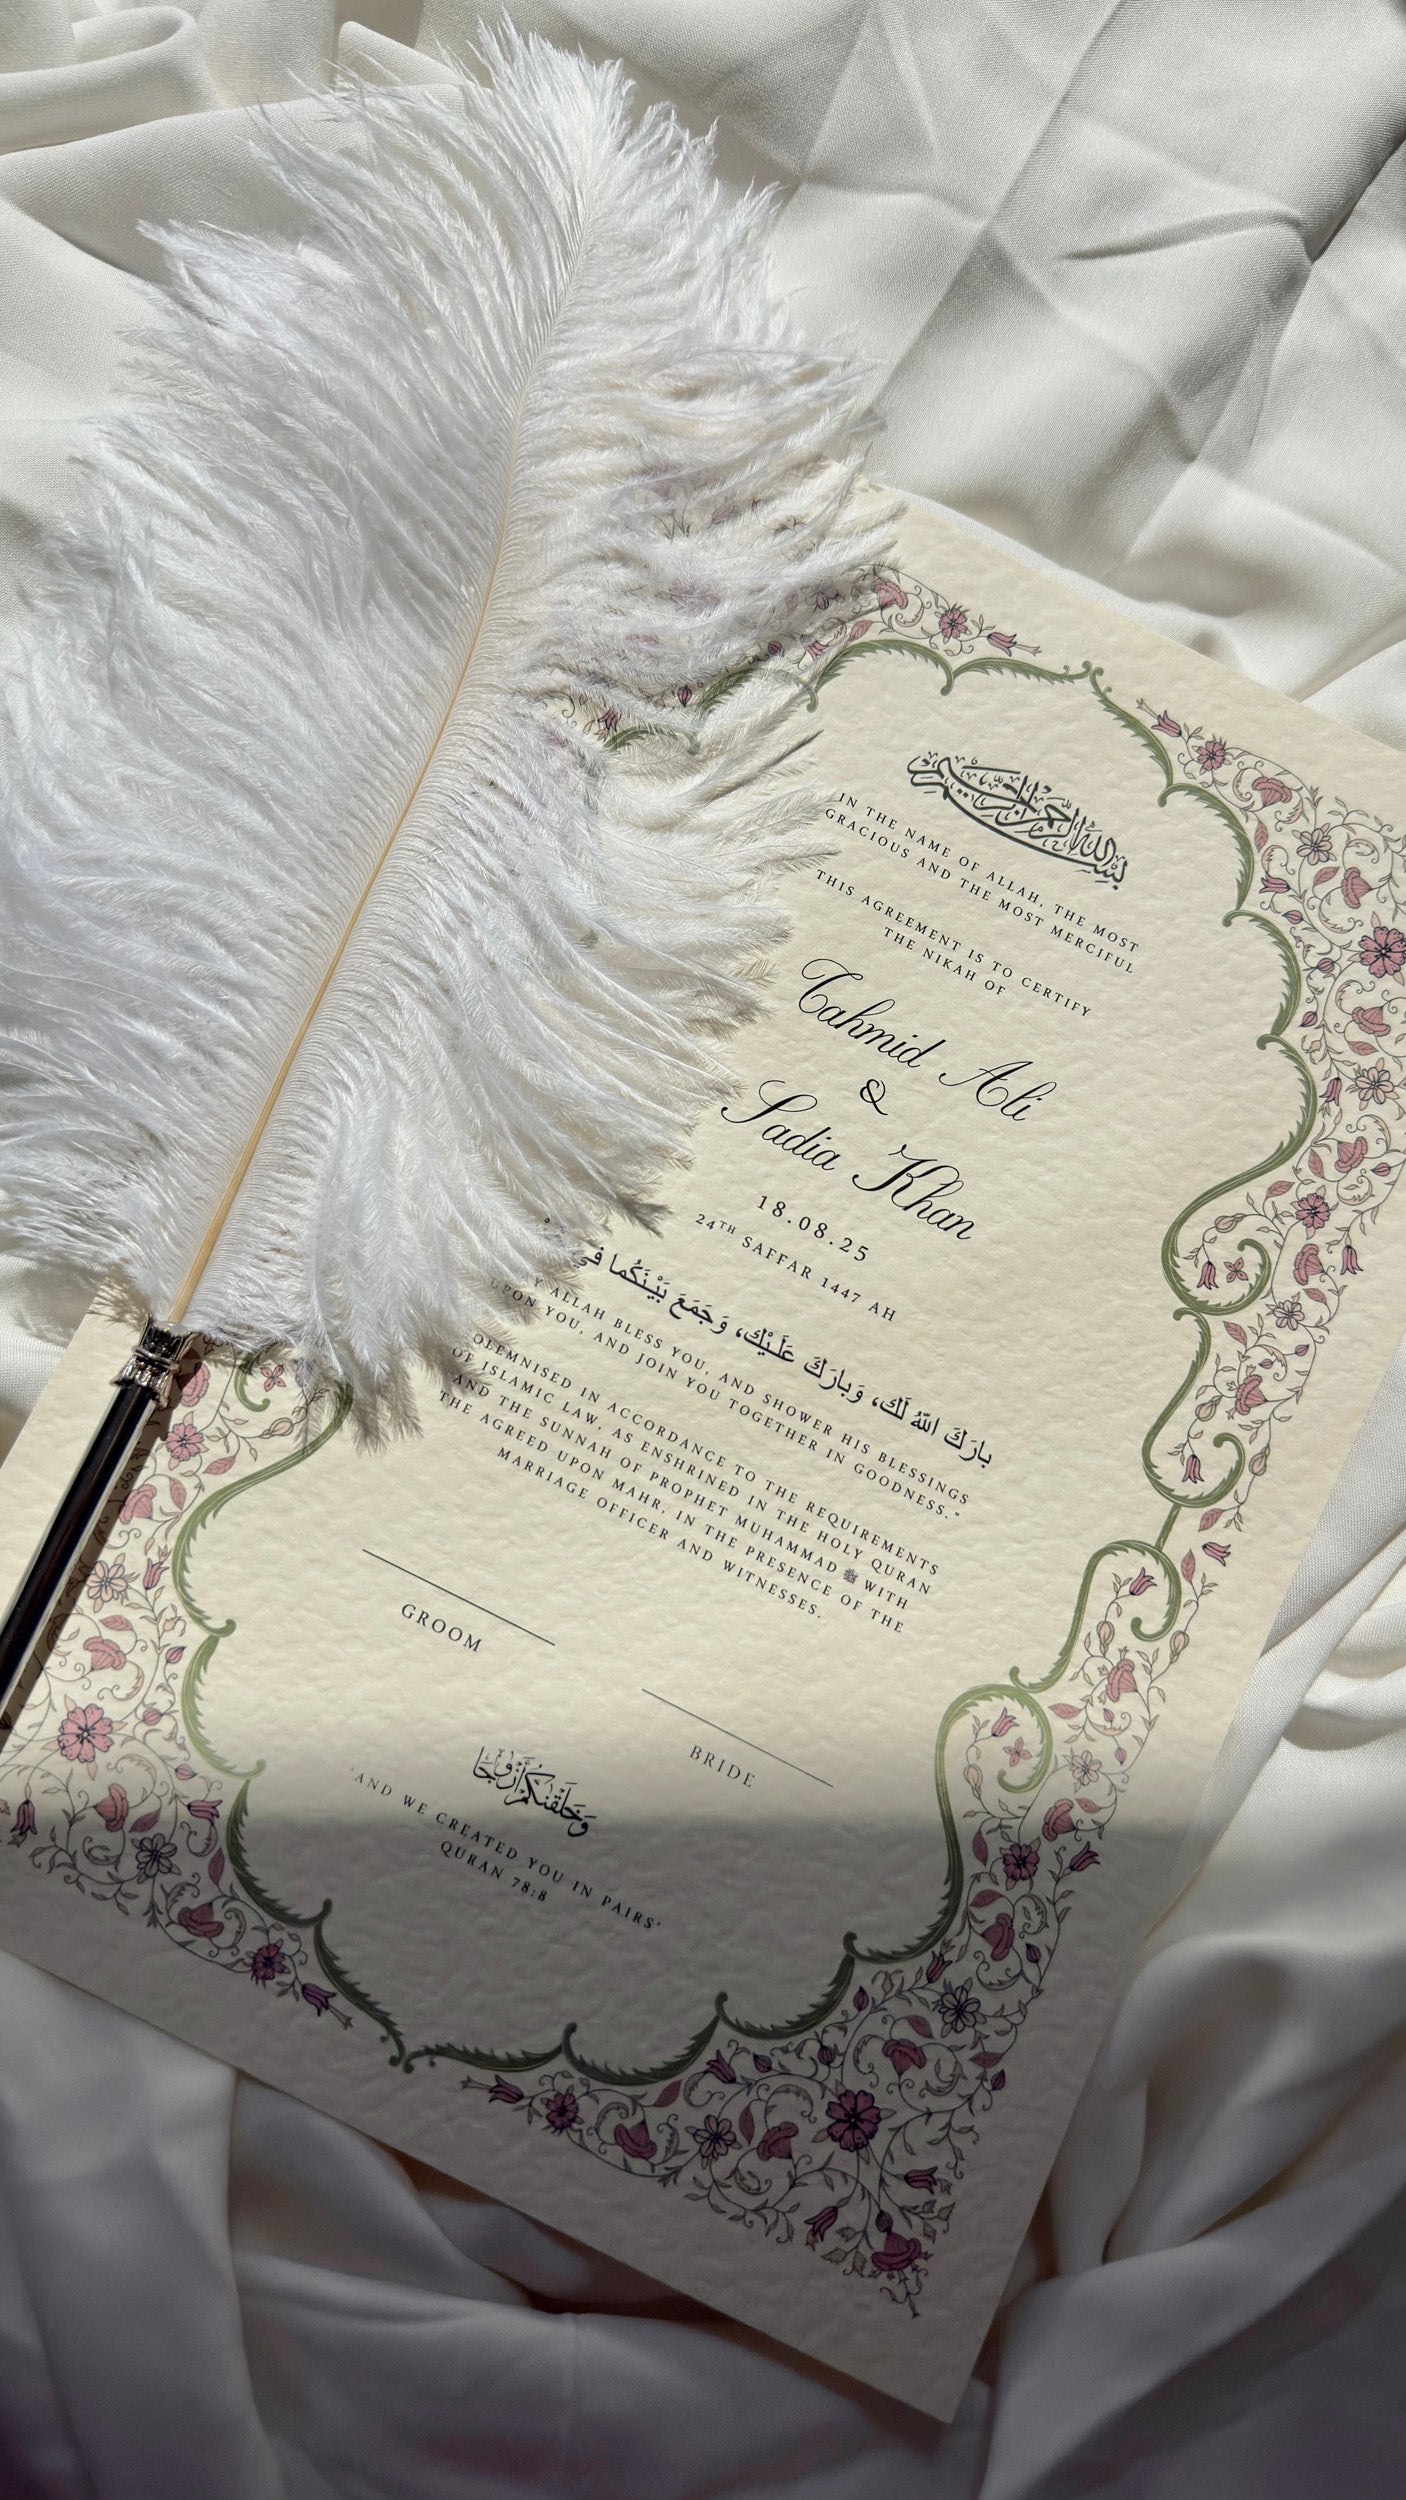 بسم الله الرحمن الرحيم
IN THE NAME OF ALLAH, THE MOST
GRACIOUS AND THE MOST MERCIFUL
THIS AGREEMENT IS TO CERTIFY
THE NIKAH OF
Tahmid Ali
&
Sadia Khan
18.08.25
24TH SAFFAR 1447 AH
بارَكَ اللهُ لَكَ، وَبارَكَ عَلَيْكَ، وَجَمَعَ بَيْنَكُما في
ALLAH BLESS YOU, AND SHOWER HIS BLESSINGS
UPON YOU, AND JOIN YOU TOGETHER IN GOODNESS."
OLEMNISED IN ACCORDANCE TO THE REQUIREMENTS
OF ISLAMIC LAW, AS ENSHRINED IN THE HOLY QURAN
AND THE SUNNAH OF PROPHET MUHAMMAD ﷺ WITH
THE AGREED UPON MAHR, IN THE PRESENCE OF THE
MARRIAGE OFFICER AND WITNESSES.
GROOM
BRIDE
وَخَلَقْنَاكُمْ أَزْوَاجًا
'AND WE CREATED YOU IN PAIRS'
QURAN 78:8